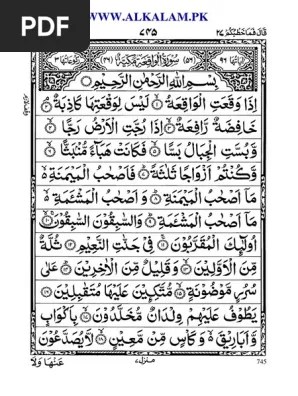 PDF
WWW.ALKALAM.PK
قَالَ فَمَا خَطْبُكُمْ ٢٧
٧٤٥
اٰيَاتُهَا ٩٦
(٥٦) سُوْرَةُ الْوَاقِعَةِ مَكِّيَّةٌ (٤٦)
رُكُوْعَاتُهَا ٣
بِسْمِ اللّٰهِ الرَّحْمٰنِ الرَّحِيْمِ
اِذَا وَقَعَتِ الْوَاقِعَةُ ۙ﴿١﴾ لَيْسَ لِوَقْعَتِهَا كَاذِبَةٌ ۘ﴿٢﴾
خَافِضَةٌ رَّافِعَةٌ ۙ﴿٣﴾ اِذَا رُجَّتِ الْاَرْضُ رَجًّا ۙ﴿٤﴾
وَّبُسَّتِ الْجِبَالُ بَسًّا ۙ﴿٥﴾ فَكَانَتْ هَبَآءً مُّنْۢبَثًّا ۙ﴿٦﴾
وَّكُنْتُمْ اَزْوَاجًا ثَلٰثَةً ؕ﴿٧﴾ فَاَصْحٰبُ الْمَيْمَنَةِ ۙ۬
مَاۤ اَصْحٰبُ الْمَيْمَنَةِ ؕ﴿٨﴾ وَاَصْحٰبُ الْمَشْـَٔمَةِ ۙ۬
مَاۤ اَصْحٰبُ الْمَشْـَٔمَةِ ؕ﴿٩﴾ وَالسّٰبِقُوْنَ السّٰبِقُوْنَ ۚۙ﴿١٠﴾
اُولٰٓئِكَ الْمُقَرَّبُوْنَ ۚ﴿١١﴾ فِيْ جَنّٰتِ النَّعِيْمِ ﴿١٢﴾ ثُلَّةٌ
مِّنَ الْاَوَّلِيْنَ ۙ﴿١٣﴾ وَقَلِيْلٌ مِّنَ الْاٰخِرِيْنَ ؕ﴿١٤﴾ عَلٰى
سُرُرٍ مَّوْضُوْنَةٍ ۙ﴿١٥﴾ مُّتَّكِـِٕيْنَ عَلَيْهَا مُتَقٰبِلِيْنَ ﴿١٦﴾
يَطُوْفُ عَلَيْهِمْ وِلْدَانٌ مُّخَلَّدُوْنَ ۙ﴿١٧﴾ بِاَكْوَابٍ
وَّاَبَارِيْقَ ۙ۬ وَكَاْسٍ مِّنْ مَّعِيْنٍ ۙ﴿١٨﴾ لَّا يُصَدَّعُوْنَ
عَنْهَا وَلَا
منزل ٧
745